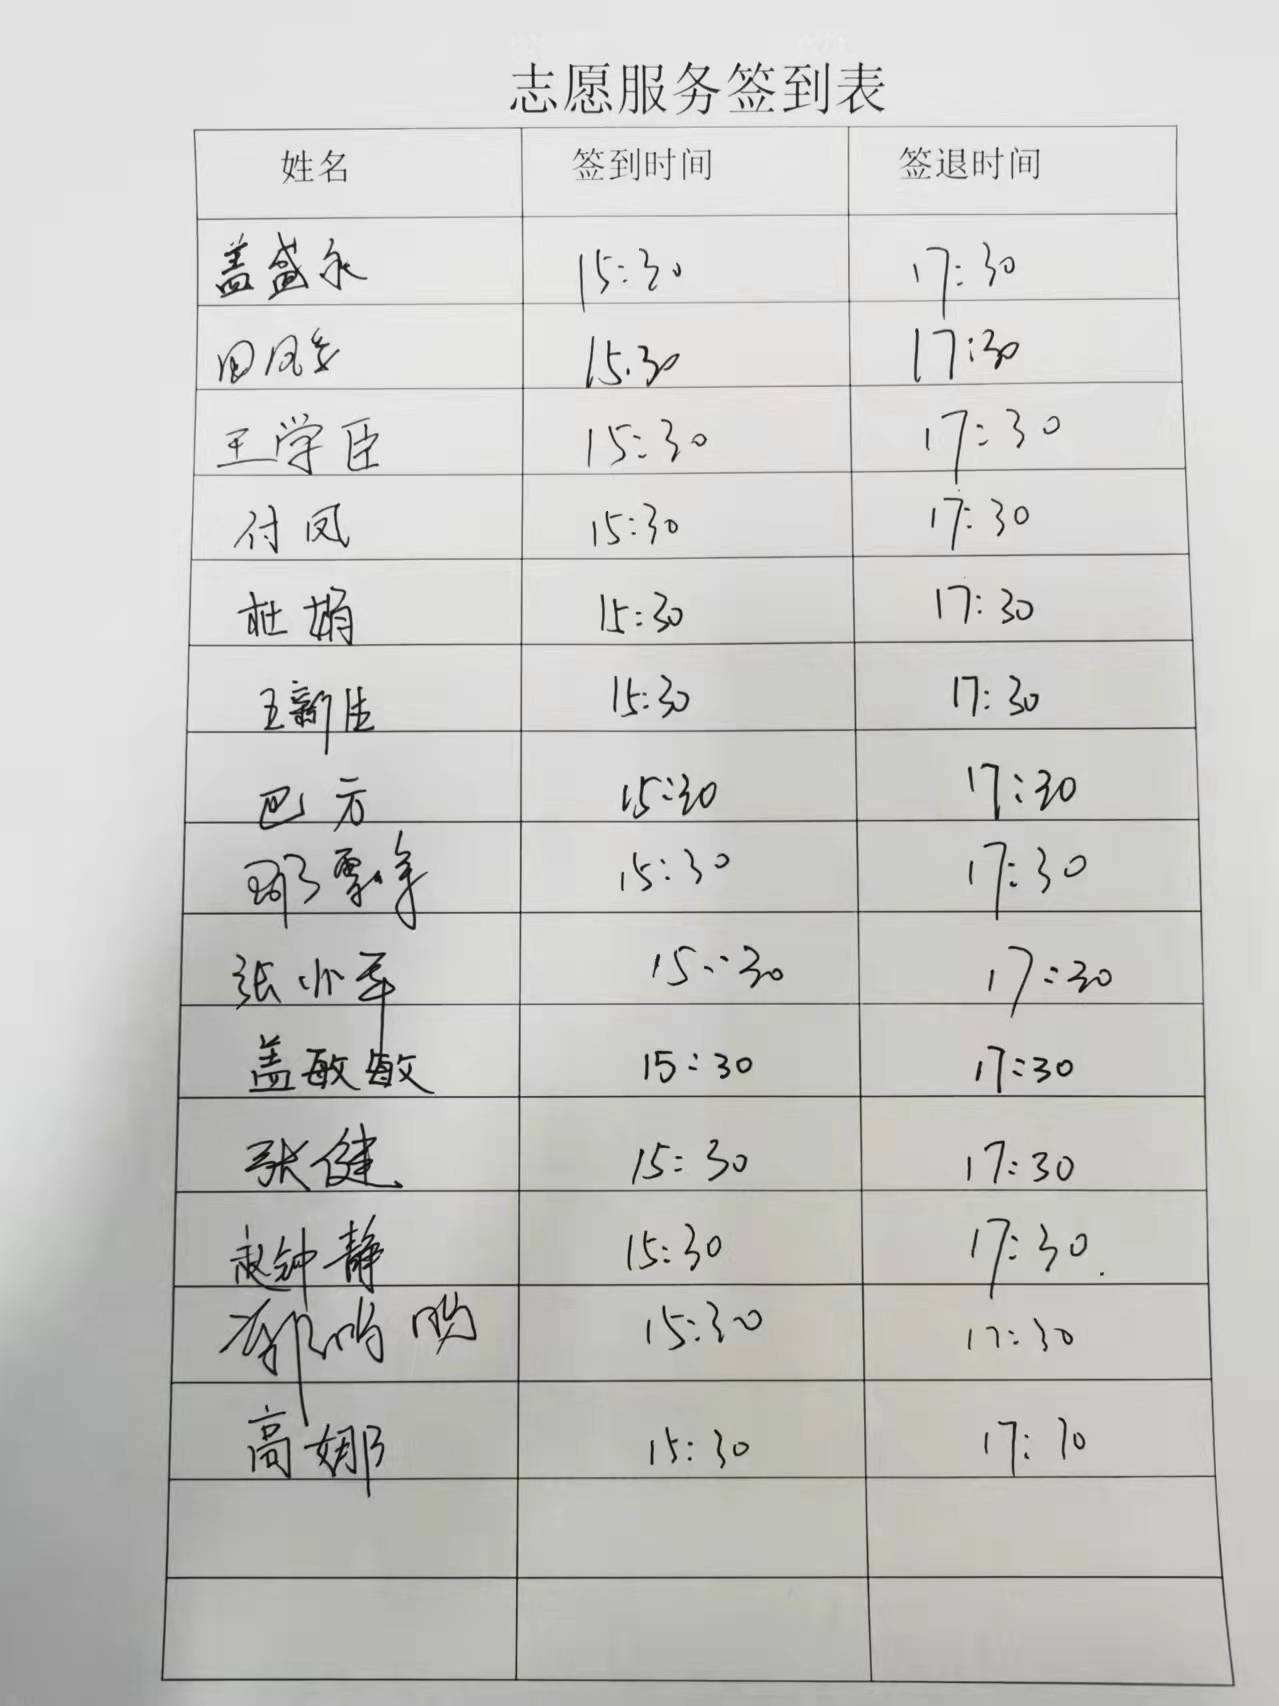 志愿服务签到表
姓名 签到时间 签退时间
盖盛永 15:30 17:30
田凤 15:30 17:30
王学臣 15:30 17:30
付凤 15:30 17:30
杜娟 15:30 17:30
王新佳 15:30 17:30
巴方 15:30 17:30
15:30 17:30
张小军 15:30 17:30
盖敏敏 15:30 17:30
张健 15:30 17:30
赵钟静 15:30 17:30
15:30 17:30
高娜 15:30 17:30